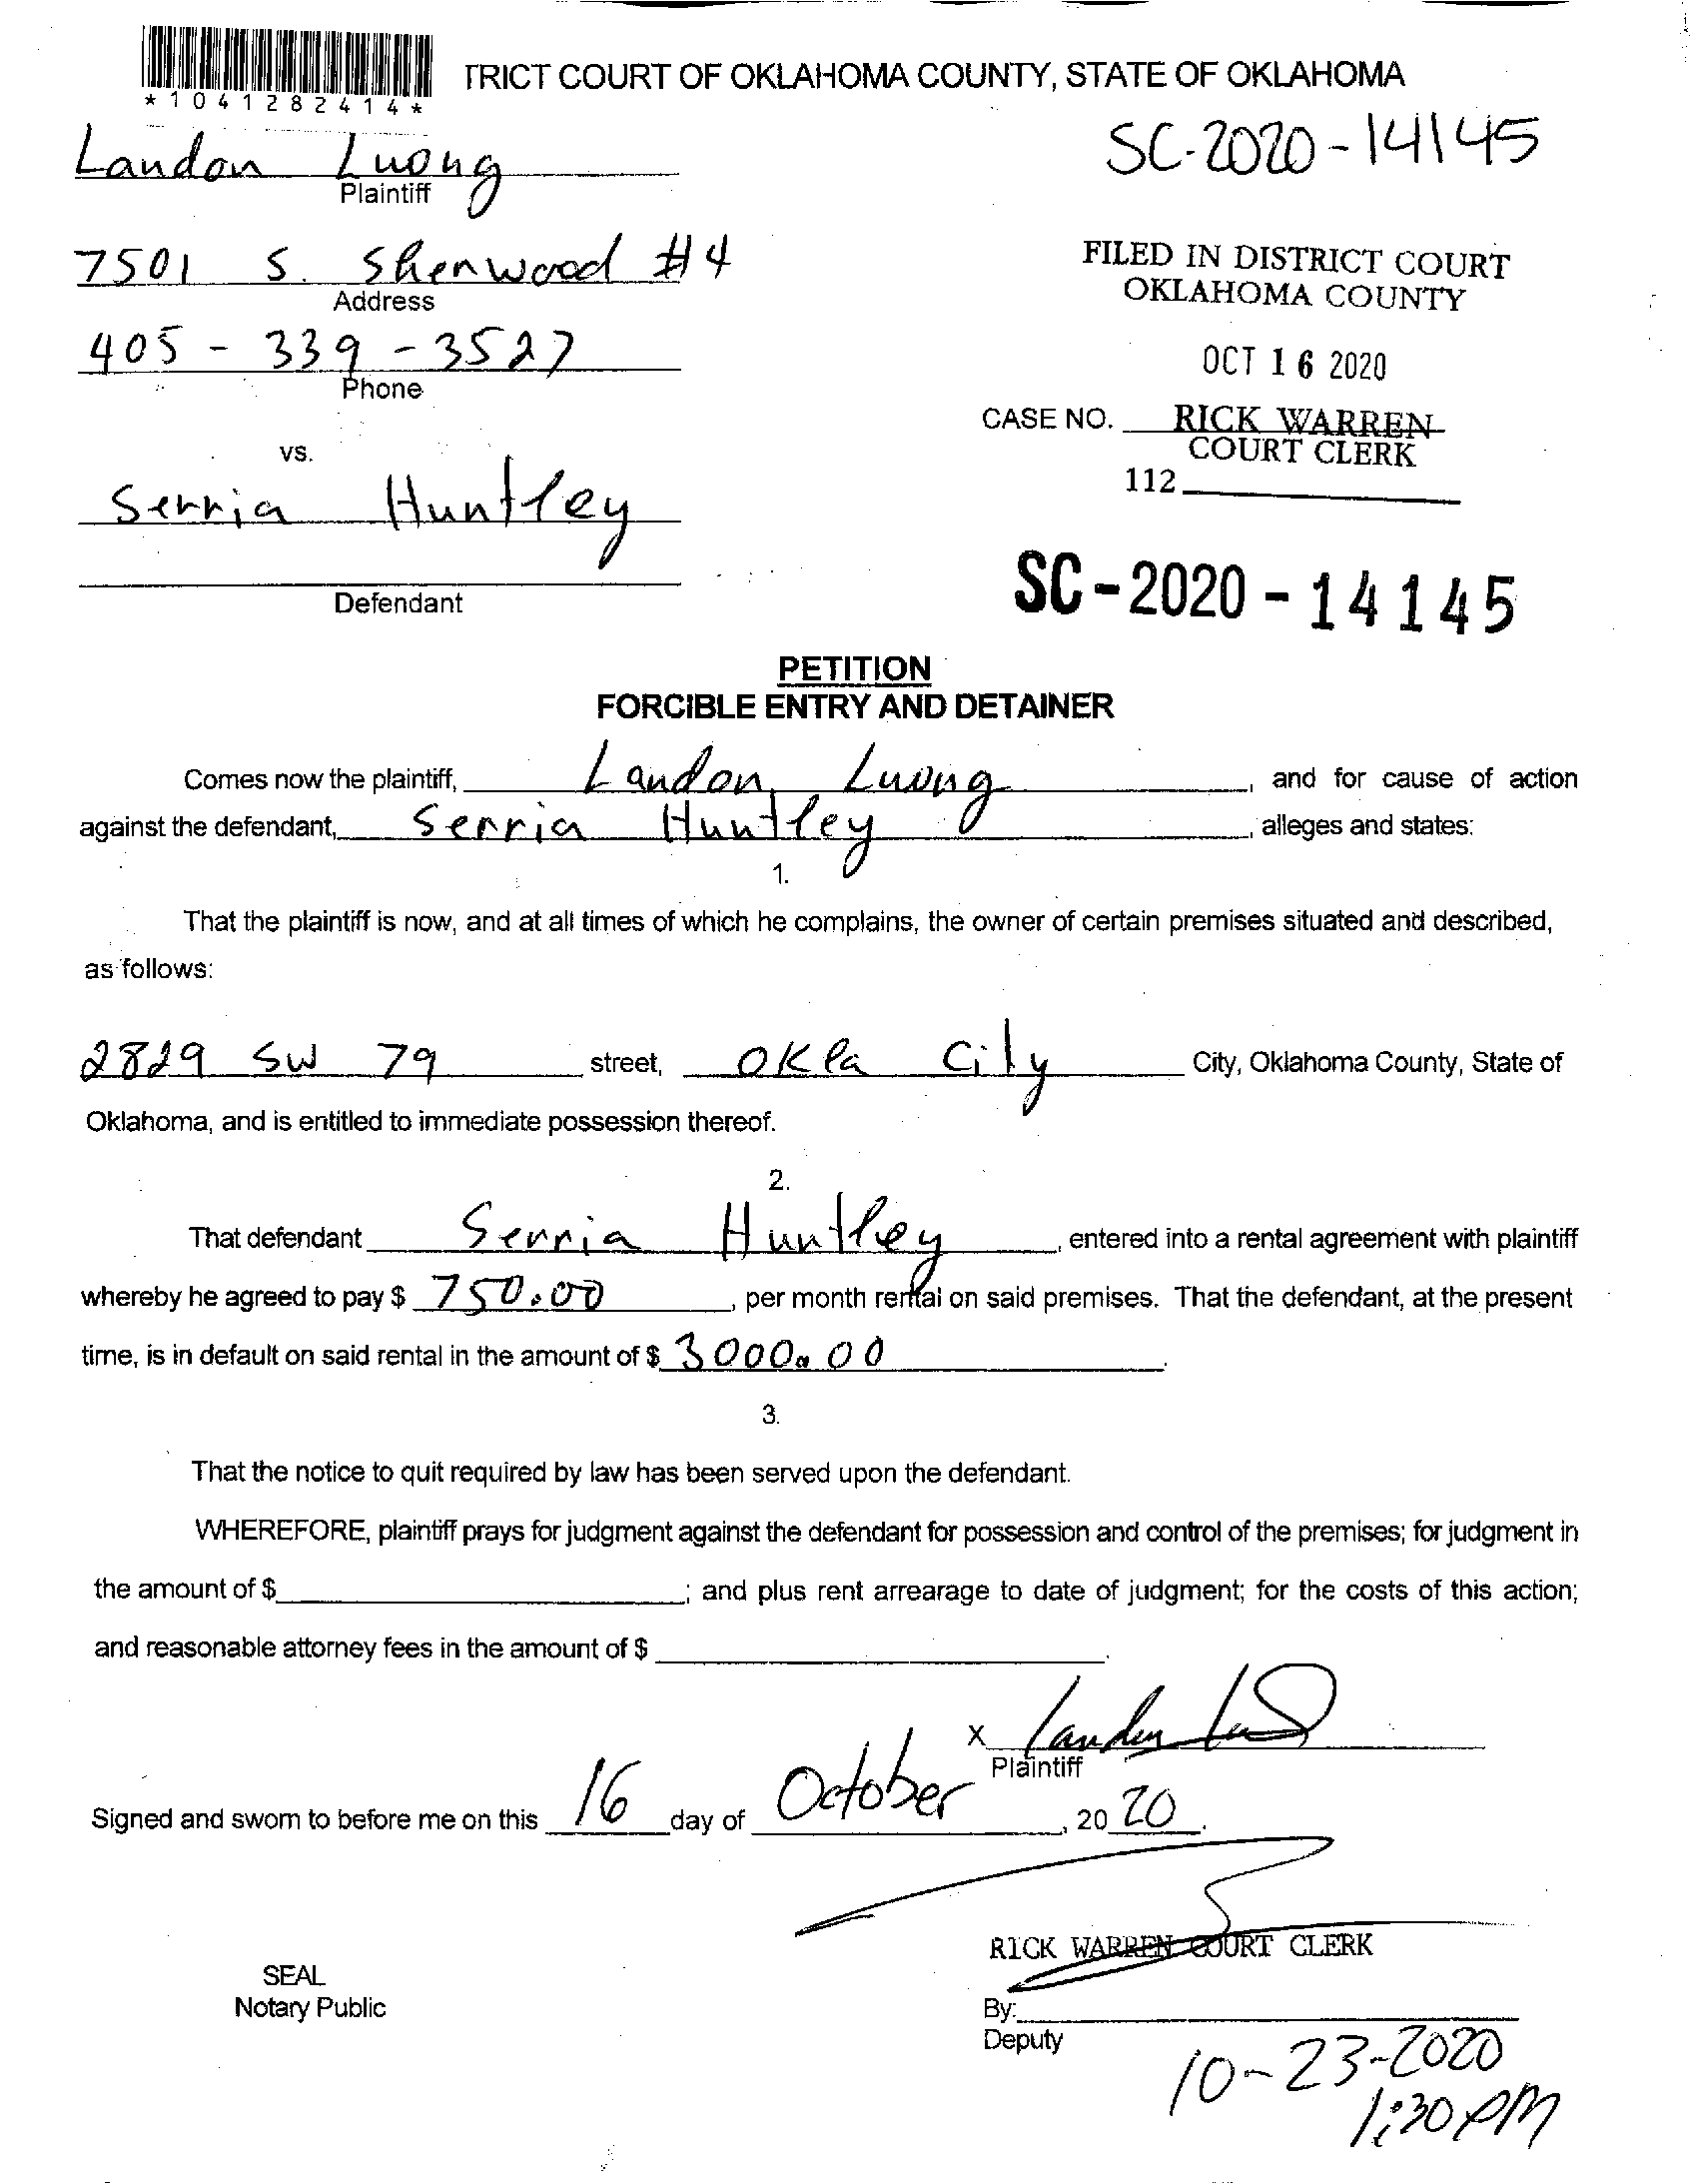 *1041282414*
TRICT COURT OF OKLAHOMA COUNTY, STATE OF OKLAHOMA
SC-2020-14145
Landon Luong
Plaintiff
7501 S. Sherwood #4
Address
FILED IN DISTRICT COURT
OKLAHOMA COUNTY
405-339-3527
Phone
OCT 16 2020
CASE NO. RICK WARREN
COURT CLERK
vs.
112
Serria Huntley
Defendant
SC-2020-14145
PETITION
FORCIBLE ENTRY AND DETAINER
Comes now the plaintiff, Landon Luong, and for cause of action
against the defendant, Serria Huntley, alleges and states:
1.
That the plaintiff is now, and at all times of which he complains, the owner of certain premises situated and described,
as follows:
2829 SW 79 street, Okla City City, Oklahoma County, State of
Oklahoma, and is entitled to immediate possession thereof.
2.
That defendant Serria Huntley, entered into a rental agreement with plaintiff
whereby he agreed to pay $ 750.00, per month rental on said premises. That the defendant, at the present
time, is in default on said rental in the amount of $ 3000.00.
3.
That the notice to quit required by law has been served upon the defendant.
WHEREFORE, plaintiff prays for judgment against the defendant for possession and control of the premises; for judgment in
the amount of $ ; and plus rent arrearage to date of judgment; for the costs of this action;
and reasonable attorney fees in the amount of $ .
X
Plaintiff
Signed and sworn to before me on this 16 day of October, 20 20.
RICK WARREN COURT CLERK
SEAL
Notary Public
By:
Deputy
10-23-2020
1:30 PM